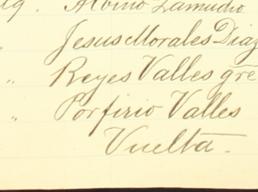 Albino Zamudio
Jesus Morales Diaz
" Reyes Valles gre
" Porfirio Valles
Vuelta.